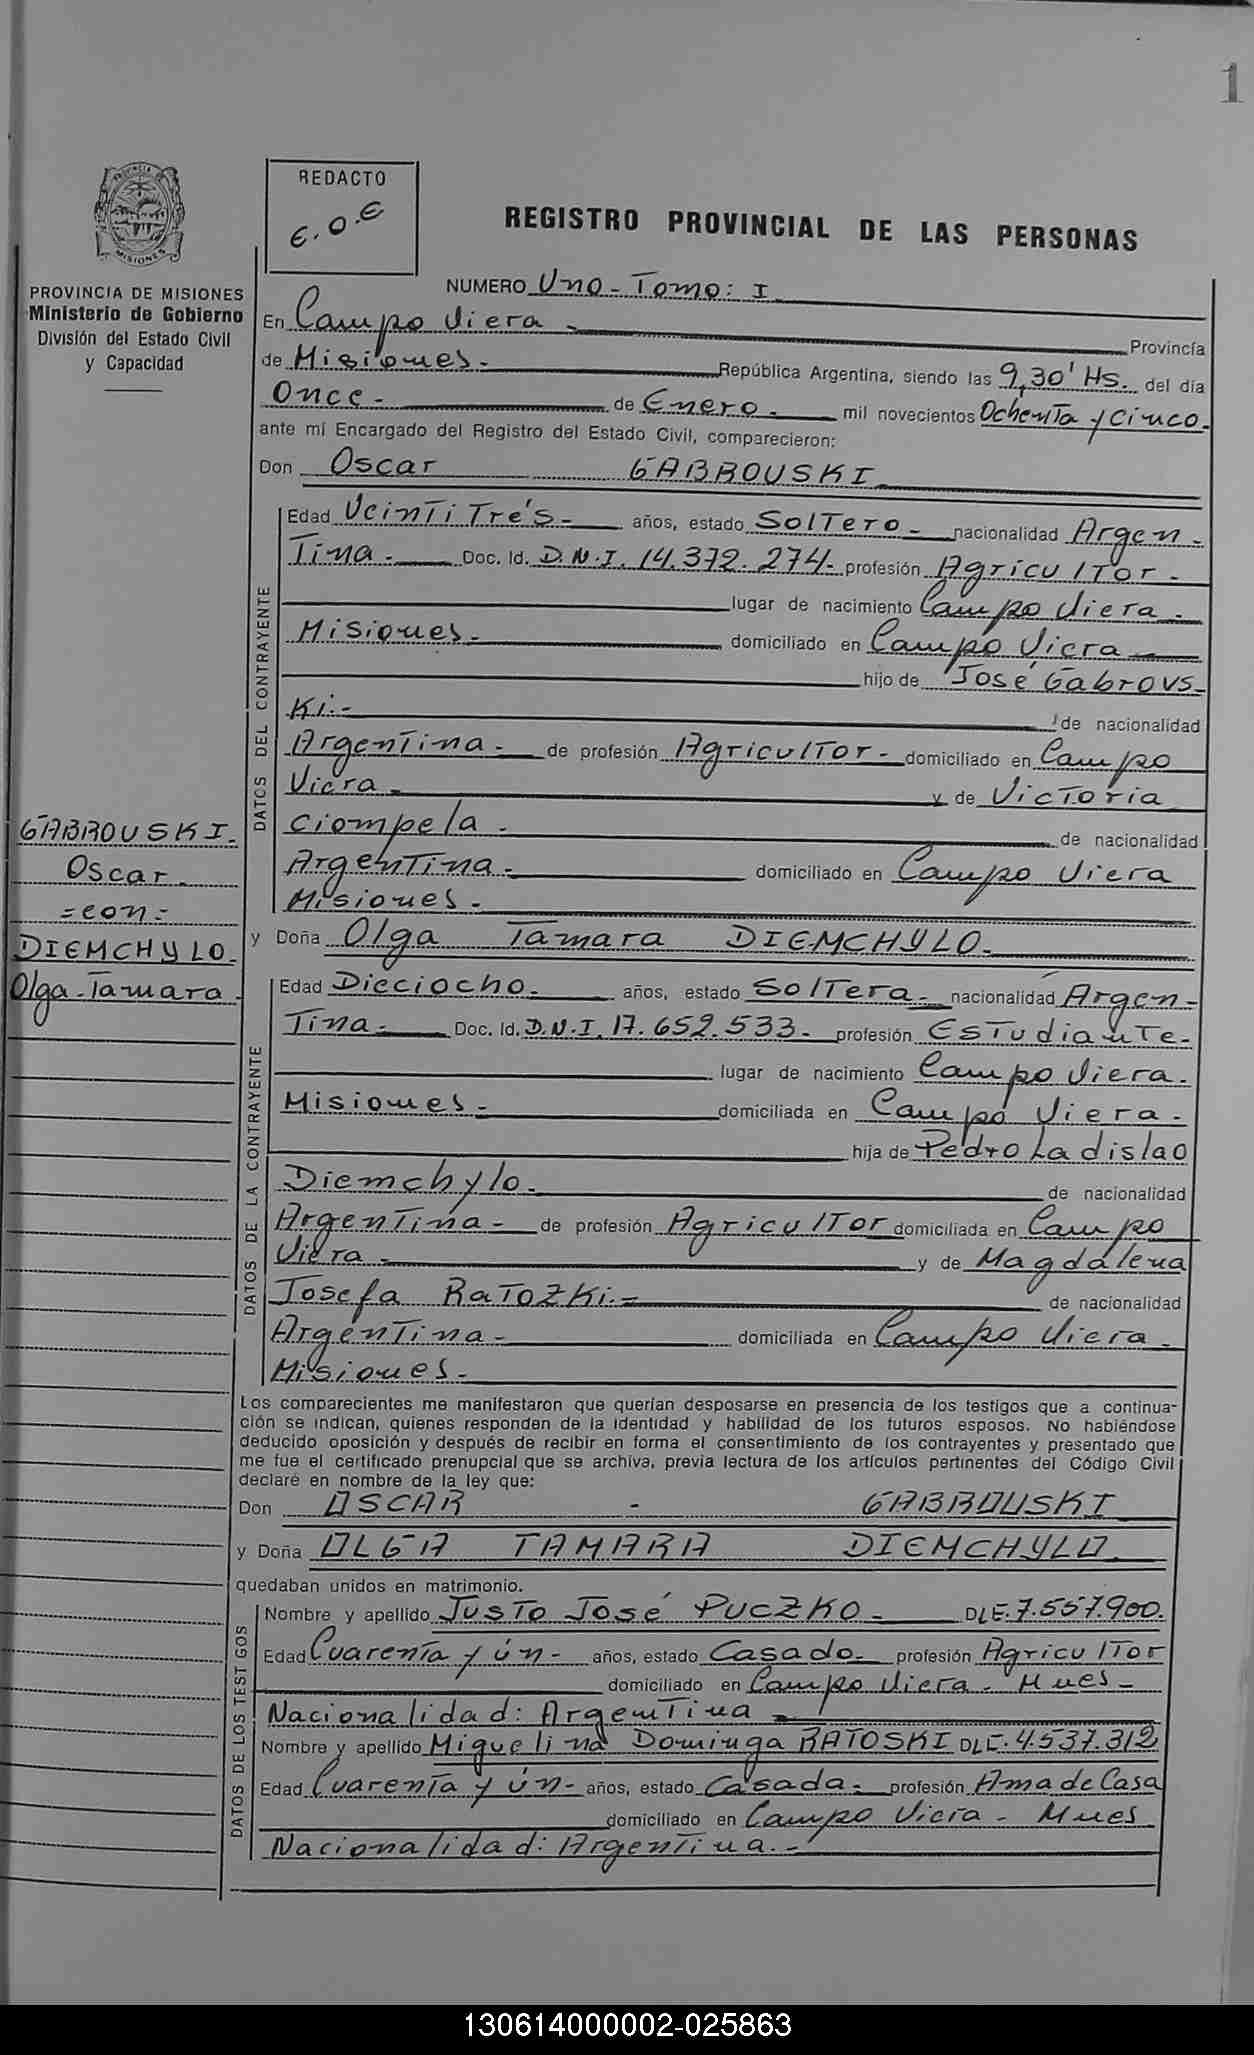 1
PROVINCIA DE
MISIONES
REDACTO
E.O.E
REGISTRO PROVINCIAL DE LAS PERSONAS
PROVINCIA DE MISIONES
Ministerio de Gobierno
División del Estado Civil
y Capacidad
NUMERO Uno - Tomo: I
En Campo Viera - Provincia
de Misiones - República Argentina, siendo las 9,30' Hs. del día
Once - de Enero - mil novecientos Ochenta y Cinco -
ante mí Encargado del Registro del Estado Civil, comparecieron:
Don Oscar GABROUSKI
DATOS DEL CONTRAYENTE
Edad Veinti Trés - años, estado Soltero - nacionalidad Argen -
Tina - Doc. Id. D.N.I. 14.372.274 - profesión Agricultor -
lugar de nacimiento Campo Viera -
Misiones - domiciliado en Campo Viera
hijo de José Gabrous-
Ki.- de nacionalidad
Argentina - de profesión Agricultor - domiciliado en Campo
Viera - y de Victoria
Ciompela - de nacionalidad
Argentina - domiciliado en Campo Viera
Misiones -
GABROUSKI -
Oscar -
= con =
DIEMCHYLO -
Olga - Tamara -
y Doña Olga Tamara DIEMCHYLO -
DATOS DE LA CONTRAYENTE
Edad Dieciocho - años, estado Soltera - nacionalidad Argen -
Tina - Doc. Id. D.N.I. 17.652.533 - profesión Estudiante -
lugar de nacimiento Campo Viera -
Misiones - domiciliada en Campo Viera -
hija de Pedro Ladislao
Diemchylo - de nacionalidad
Argentina - de profesión Agricultor domiciliada en Campo
Viera - y de Magdalena
Josefa Ratozki.- de nacionalidad
Argentina - domiciliada en Campo Viera -
Misiones -
Los comparecientes me manifestaron que querían desposarse en presencia de los testigos que a continua-
ción se indican, quienes responden de la identidad y habilidad de los futuros esposos. No habiéndose
deducido oposición y después de recibir en forma el consentimiento de los contrayentes y presentado que
me fue el certificado prenupcial que se archiva, previa lectura de los artículos pertinentes del Código Civil
declaré en nombre de la ley que:
Don OSCAR - GABROUSKI
y Doña OLGA TAMARA DIEMCHYLO
quedaban unidos en matrimonio.
DATOS DE LOS TESTIGOS
Nombre y apellido Justo José PUCZKO - DLE. 7.557.900.
Edad Cuarenta y ún - años, estado Casado - profesión Agricultor
domiciliado en Campo Viera - Mnes -
Nacionalidad: Argentina -
Nombre y apellido Miguelina Dominga RATOSKI DLC. 4.537.312
Edad Cuarenta y ún - años, estado Casada - profesión Ama de Casa
domiciliado en Campo Viera - Mnes
Nacionalidad: Argentina.-
130614000002-025863